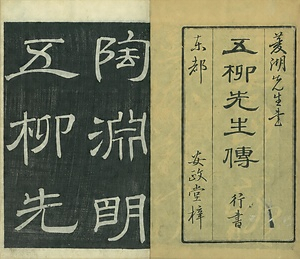 菱湖先生書
五柳先生傳
行書
东都
安政堂梓
陶淵明
五柳先